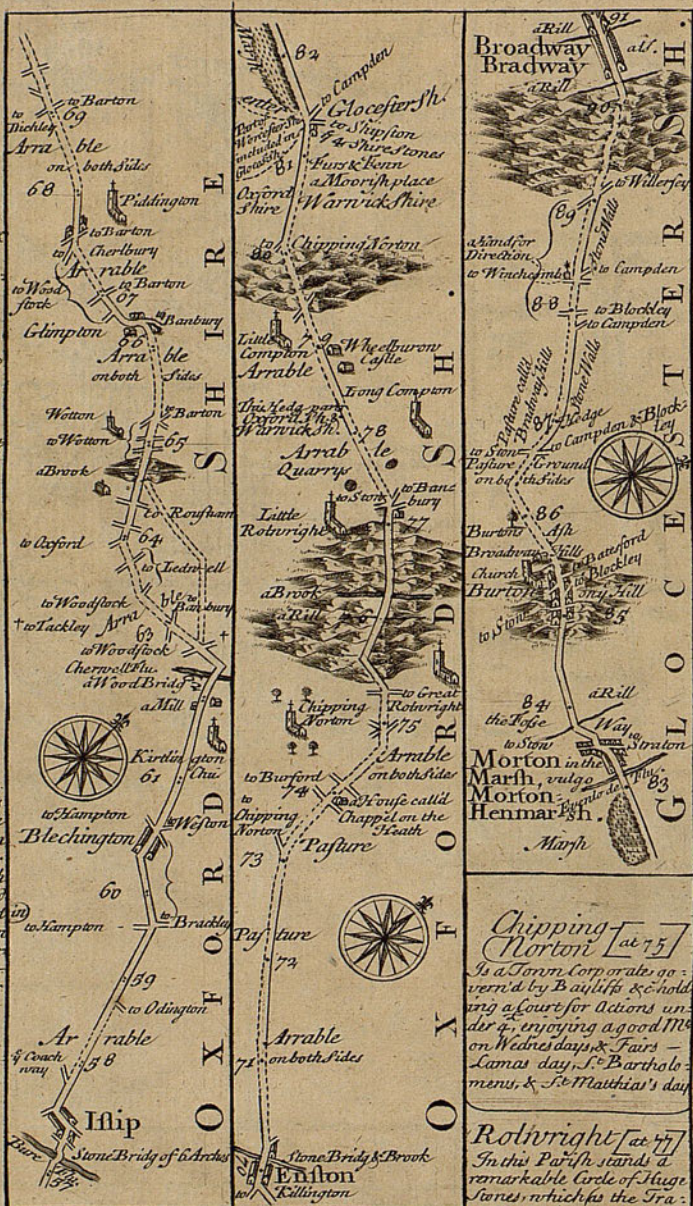 to Barton
69
to Dichley
Arra ble
on both Sides
68
Piddington
to Barton
to Cherlbury
Arrable
to Wood
stock
to Barton
67
to Banbury
Glimpton
66
Arra ble
on both Sides
Wotton
to Barton
to Wotton
65
a Brook
to Rousham
64
to Oxford
to Ledwell
to Woodstock
to Banbury
to Tackley
Arra ble
63
to Woodstock
Cherwell Flu.
a Wood Bridg
a Mill
Kirtlington
Chu
61
to Hampton
Weston
Blechington
60
to Hampton
to Brackley
59
to Odington
Ar rable
58
ye Coach
way
Islip
Bure
Flu.
Stone Bridg of 6 Arches
57
OXFORD SHIRE
82
to Campden
Glocester Sh.
enter
Part of
Worcester Sh.
included in
Glocest Sh
to Shipston
4 Shire Stones
81
Furs & Fenn
a Moorish place
Oxford
Shire
Warwick Shire
to Chipping Norton
80
Little
Compton
79
Wheelburow
Castle
Arrable
Long Compton
This Hedg parts
Oxford Sh. &
Warwick Sh.
78
Arrab le
Quarrys
to Stow
to Ban=
bury
77
Little
Rolwright
a Brook
a Rill
76
to Great
Rolwright
Chipping
Norton
75
Arrable
on both Sides
to Burford
74
a House call'd
Chappel on the
Heath
to
Chipping
Norton
73
Pasture
Pasture
72
Arrable
on both Sides
71
Stone Bridg & Brook
70
Enston
to
Killington
OXFORD SH.
91
a Rill
Broadway
als.
Bradway
a Rill
90
to Willersey
89
Stone Walls
a hand for
Direction
to Winchcomb
to Campden
88
to Blockley
to Campden
Pasture call'd
Bradway Hills
Stone Walls
87
Hedge
to Campden & Block=
ley
to Stow
Pasture Ground
on both Sides
86
Burton Ash
Broadway Hills
to Batesford
to Blockley
Church
Burton
on ye Hill
85
to Stow
84
a Rill
the Fosse Way
to Stow
to Straton
Morton in the
Marsh, vulgo
Morton=
Henmarsh.
Evenlode Flu.
83
Marsh
GLOCESTER SH.
Chipping
Norton [at 75]
Is a Town Corporate go=
vern'd by Bayliffs &c hold
ing a Court for Actions un=
der 4£, enjoying a good Mt.
on Wednesdays, & Fairs —
Lamas day, St. Bartholo=
mews, & St. Matthias's day
Rolwright [at 77]
In this Parish stands a
remarkable Circle of Huge
Stones, which as the Tra: